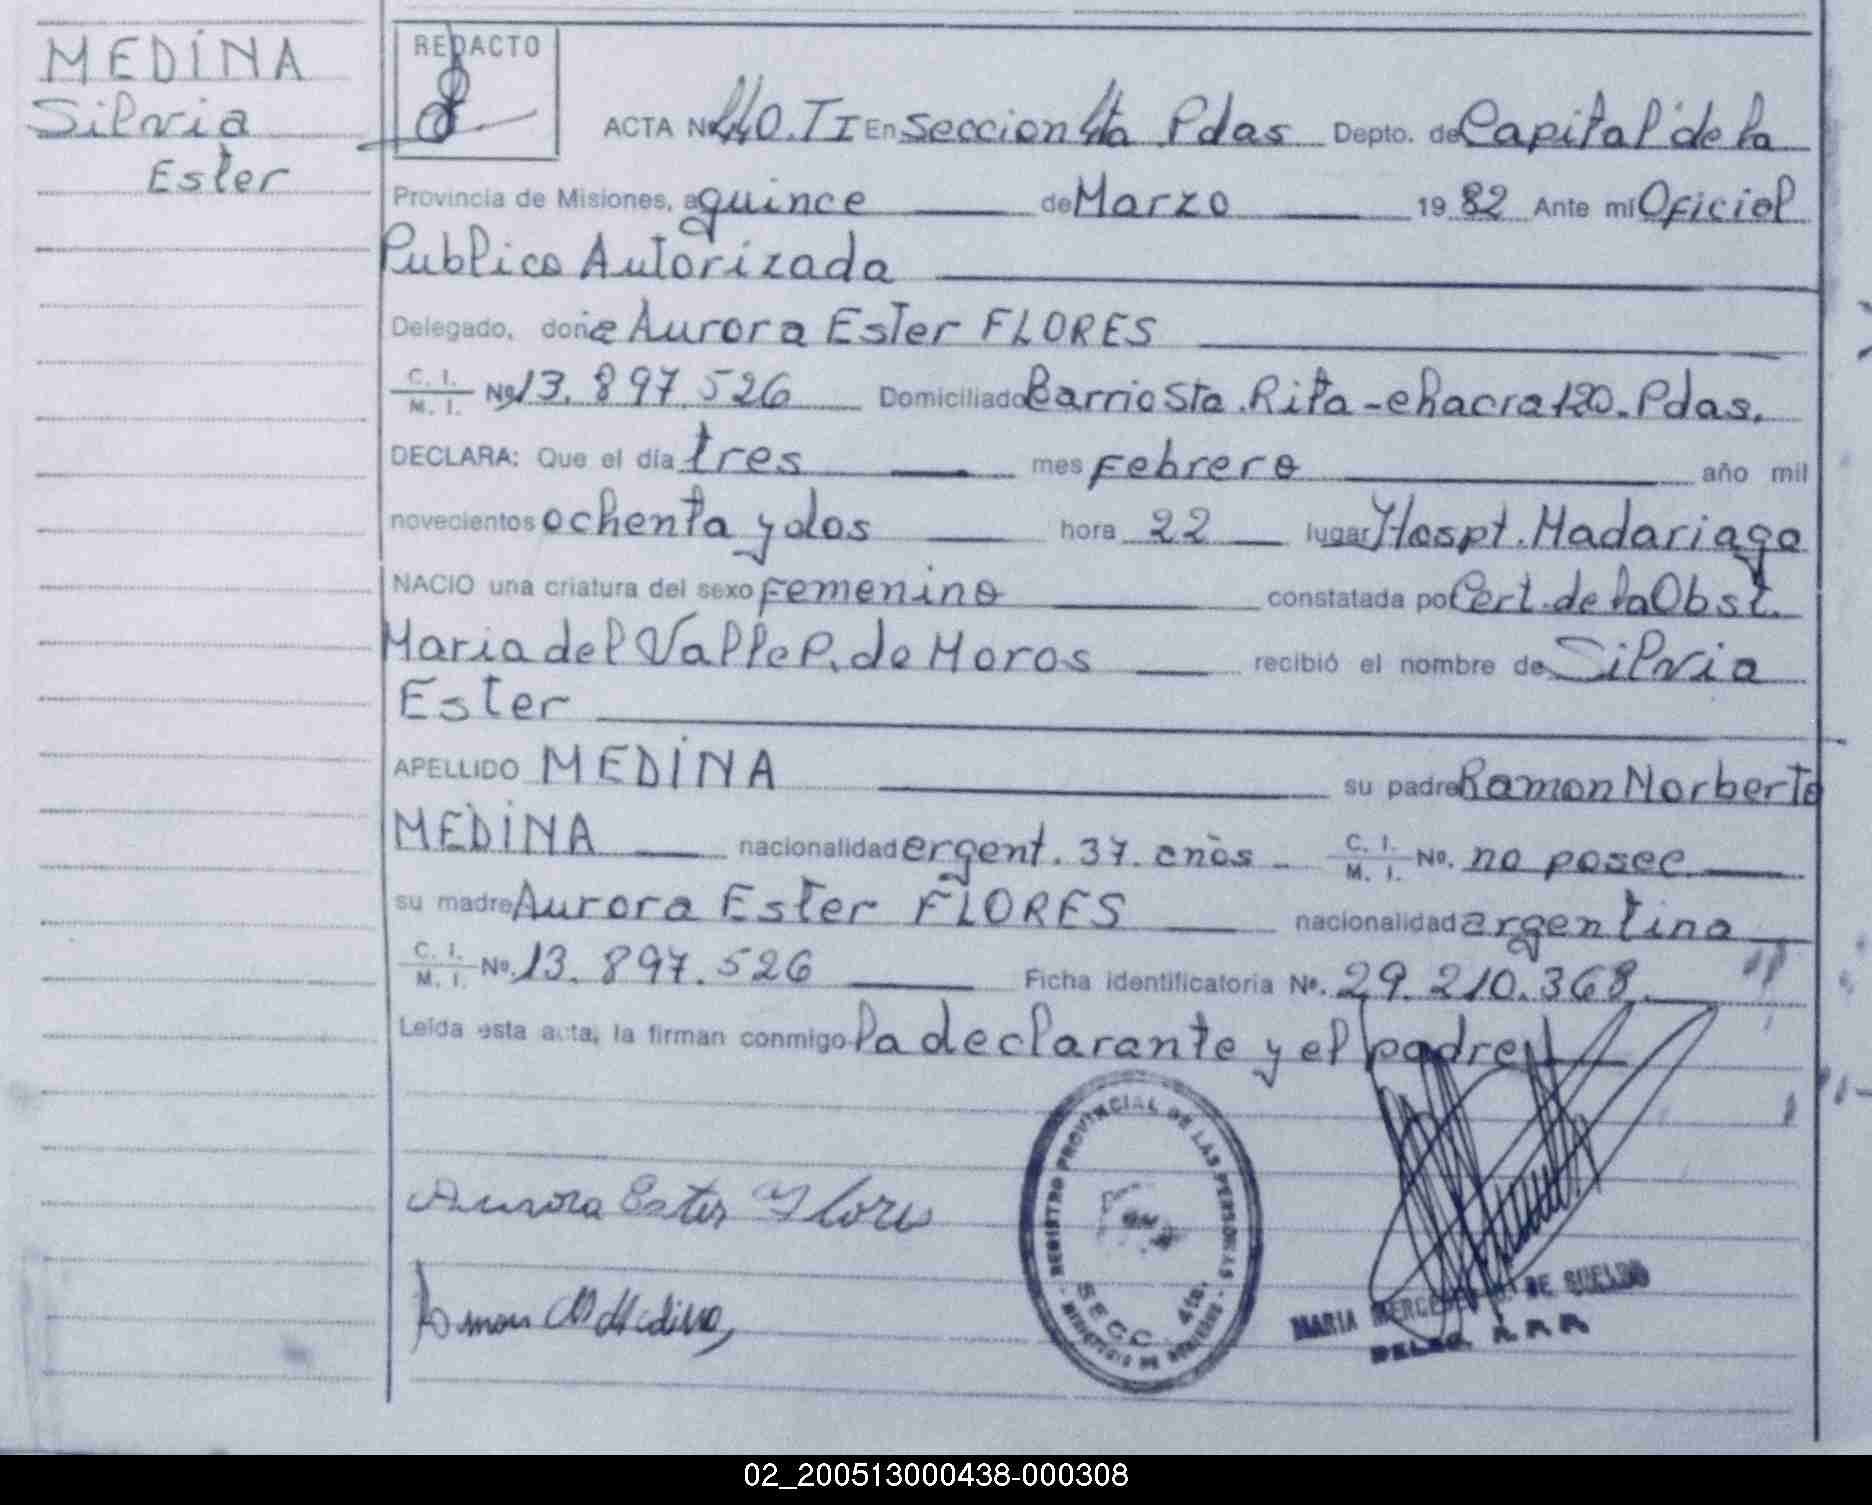 MEDINA
Silvia
Ester
REDACTO
ACTA Nº 440. TI En Seccion 4ta Pdas Depto. de Capital de la
Provincia de Misiones, a quince de Marzo 19 82 Ante mí Oficial
Publico Autorizada
Delegado, doña Aurora Ester FLORES
C. I.
M. I. Nº 13.897.526 Domiciliado Barrio Sta. Rita - chacra 120. Pdas.
DECLARA: Que el día tres mes Febrero año mil
novecientos ochenta y dos hora 22 lugar Hospt. Madariaga
NACIO una criatura del sexo Femenino constatada por Cert. de la Obst.
Maria del Valle P. de Moros recibió el nombre de Silvia
Ester
APELLIDO MEDINA su padre Ramon Norberto
MEDINA nacionalidad argent. 37. años - C. I.
M. I. Nº. no posee
su madre Aurora Ester FLORES nacionalidad argentina
C. I.
M. I. Nº. 13.897.526 Ficha identificatoria Nº. 29.210.368
Leída esta acta, la firman conmigo la declarante y el padre
Aurora Ester Flores
Ramon N Medina
REGISTRO PROVINCIAL DE LAS PERSONAS
SECC. 4ta.
- MINISTERIO DE GOBIERNO -
MARIA MERCEDES DE SUELDO
DELEG. R. P. P.
02_200513000438-000308